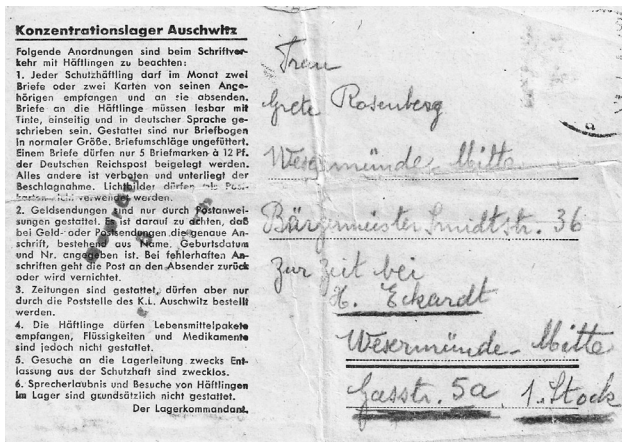 Konzentrationslager Auschwitz
Folgende Anordnungen sind beim Schriftver-
kehr mit Häftlingen zu beachten:
1. Jeder Schutzhäftling darf im Monat zwei
Briefe oder zwei Karten von seinen Ange-
hörigen empfangen und an sie absenden.
Briefe an die Häftlinge müssen lesbar mit
Tinte, einseitig und in deutscher Sprache ge-
schrieben sein. Gestattet sind nur Briefbogen
in normaler Größe. Briefumschläge ungefüttert.
Einem Briefe dürfen nur 5 Briefmarken à 12 Pf.
der Deutschen Reichspost beigelegt werden.
Alles andere ist verboten und unterliegt der
Beschlagnahme. Lichtbilder dürfen als Post-
karten nicht verwendet werden.
2. Geldsendungen sind nur durch Postanwei-
sungen gestattet. Es ist darauf zu achten, daß
bei Geld- oder Postsendungen die genaue An-
schrift, bestehend aus Name, Geburtsdatum
und Nr. angegeben ist. Bei fehlerhaften An-
schriften geht die Post an den Absender zurück
oder wird vernichtet.
3. Zeitungen sind gestattet, dürfen aber nur
durch die Poststelle des K.L. Auschwitz bestellt
werden.
4. Die Häftlinge dürfen Lebensmittelpakete
empfangen, Flüssigkeiten und Medikamente
sind jedoch nicht gestattet.
5. Gesuche an die Lagerleitung zwecks Ent-
lassung aus der Schutzhaft sind zwecklos.
6. Sprecherlaubnis und Besuche von Häftlingen
im Lager sind grundsätzlich nicht gestattet.
Der Lagerkommandant.
Frau
Grete Rosenberg
Wesermünde-Mitte
Bürgermeister Smidtstr. 36
Zur Zeit bei
H. Eckardt
Wesermünde-Mitte
Gasstr. 5a, 1. Stock